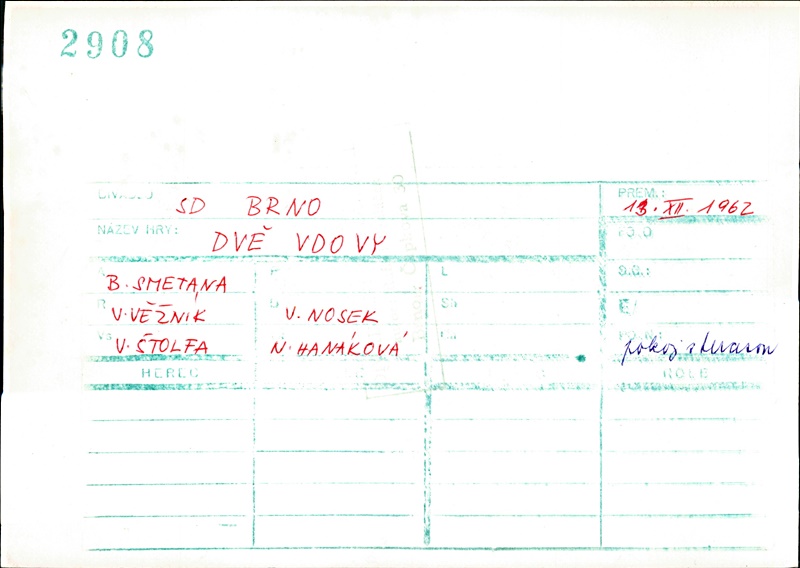 2908
DIVADLO SD BRNO PREM.:
13. XII. 1962
NÁZEV HRY: DVĚ VDOVY
B. SMETANA L
R V. VĚŽNIK V. NOSEK
V. ŠTOLFA N. HANÁKOVÁ pokoj s terasou
HEREC ROLE